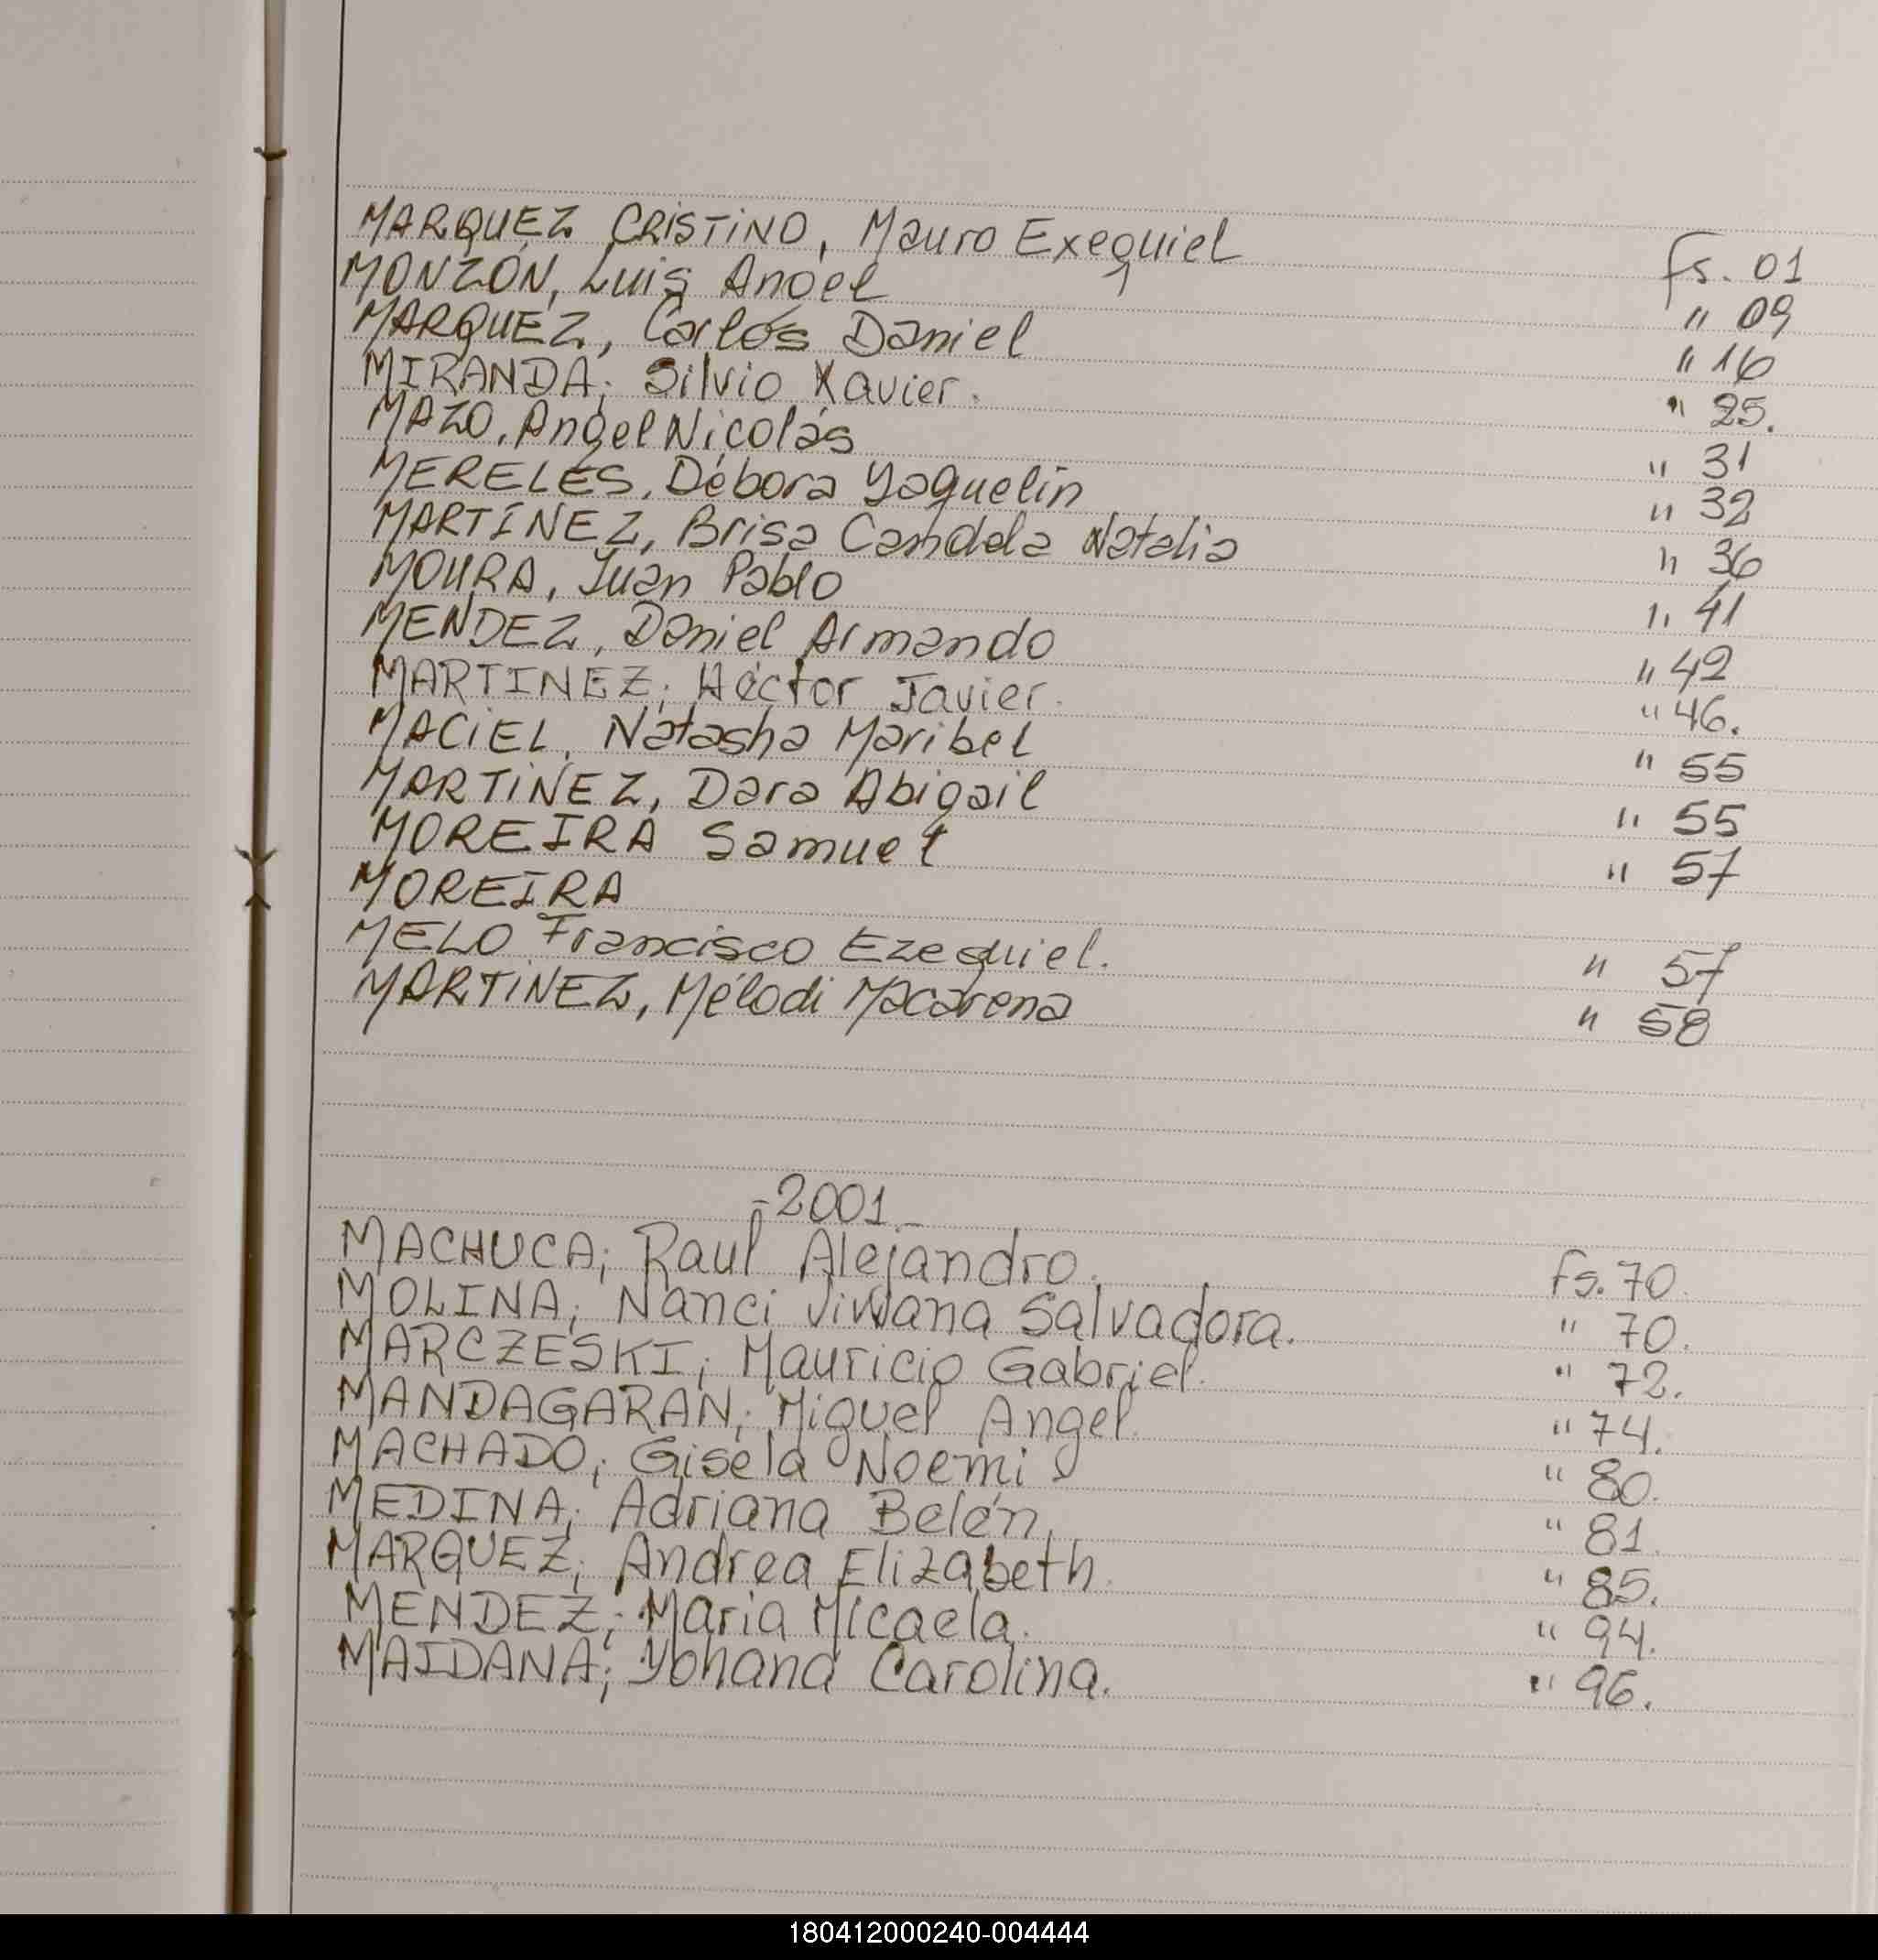 MARQUEZ CRISTINO, Mauro Exequiel fs. 01
MONZÓN, Luis Angel " 09
MARQUEZ, Carlos Daniel " 16
MIRANDA; Silvio Xavier. " 25.
MAZO, Angel Nicolás " 31
MERELES, Débora Yaquelin " 32
MARTÍNEZ, Brisa Candela Natalia " 36
MOURA, Juan Pablo " 41
MENDEZ, Daniel Armando " 42
MARTINEZ; Héctor Javier. " 46.
MACIEL, Natasha Maribel " 55
MARTINEZ, Dara Abigail " 55
MOREIRA Samuel " 57
MOREIRA
MELO Francisco Ezequiel. " 57
MARTINEZ, Mélodi Macarena " 58
-2001.-
MACHUCA; Raul Alejandro. fs. 70.
MOLINA; Nanci Viviana Salvadora. " 70.
MARCZESKI; Mauricio Gabriel. " 72.
MANDAGARAN; Miguel Angel. " 74.
MACHADO; Gisela Noemi " 80.
MEDINA; Adriana Belén. " 81.
MARQUEZ; Andrea Elizabeth. " 85.
MENDEZ; Maria Micaela. " 94.
MAIDANA; Yohana Carolina. " 96.
180412000240-004444